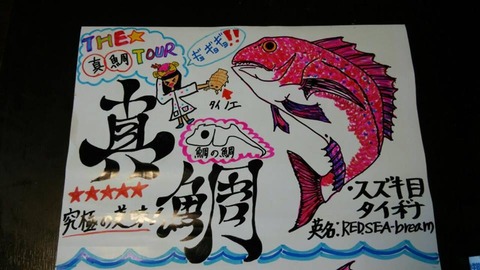 THE★
真鯛 TOUR
ギョギョギョ!!
タイノエ
真鯛
鯛の鯛
★★★★★
究極の美味
・スズキ目
タイ科
英名:REDSEA-bream